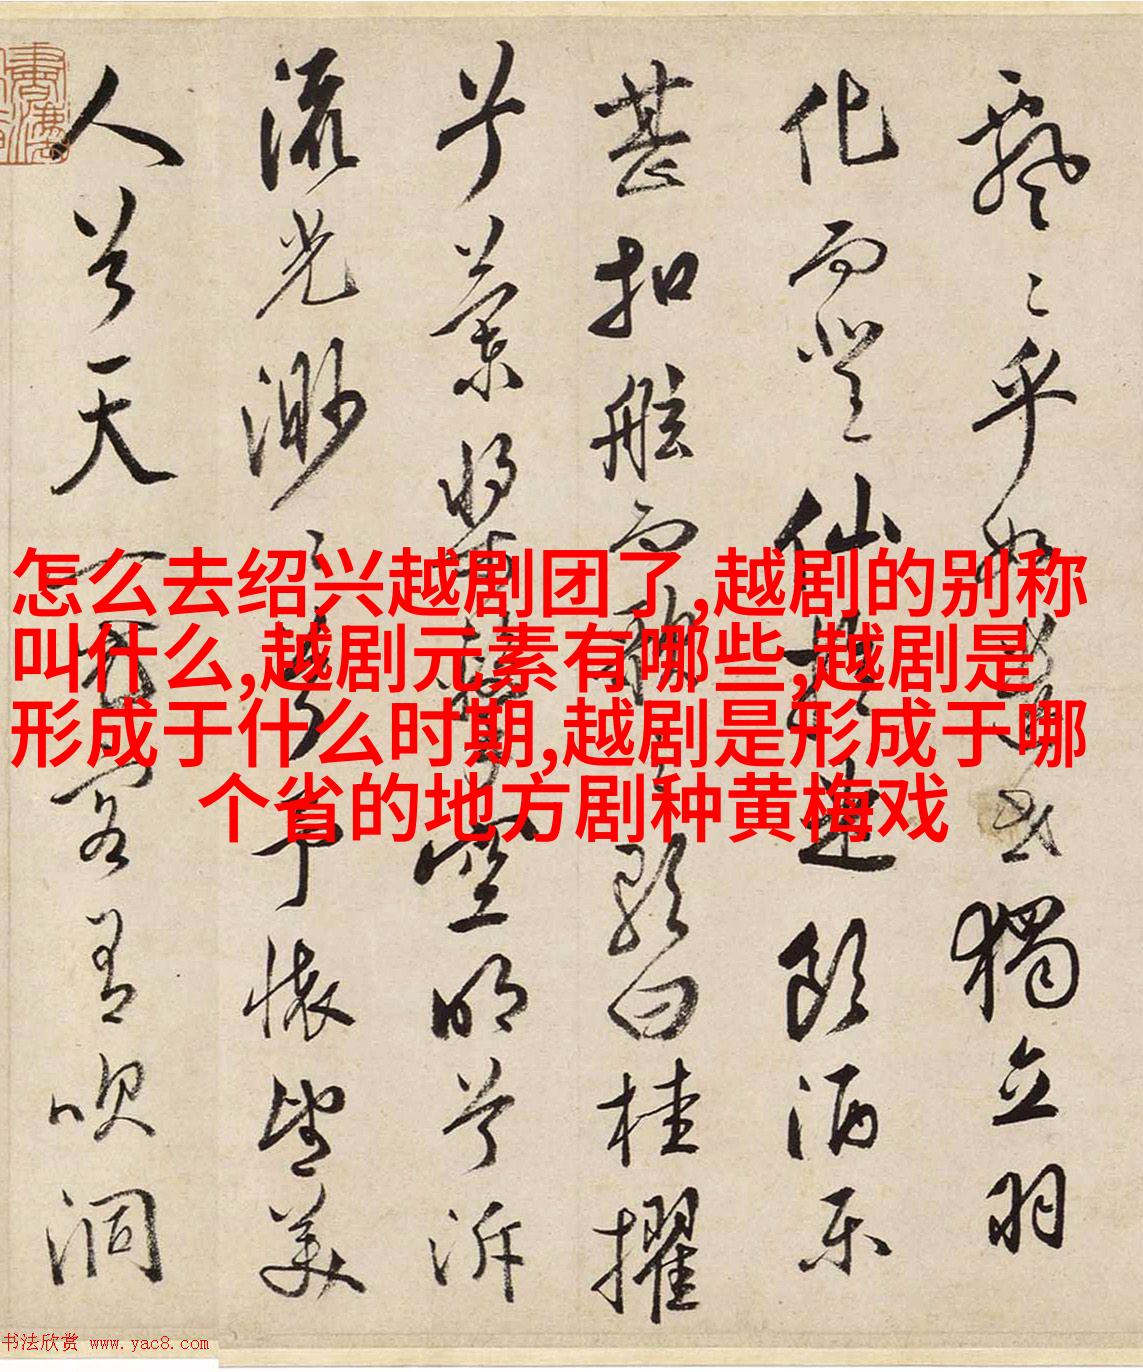 怎么去绍兴越剧团了,越剧的别称
叫什么,越剧元素有哪些,越剧是
形成于什么时期,越剧是形成于哪
个省的地方剧种黄梅戏
飄〻乎如遺世獨立羽
化而登仙於是飲酒乐
甚扣舷而歌之歌曰桂擢
兮蘭槳兮擊空明兮泝
流光渺〻兮予懷望美
人兮天一方客有吹洞
书法欣赏 www.yac8.com